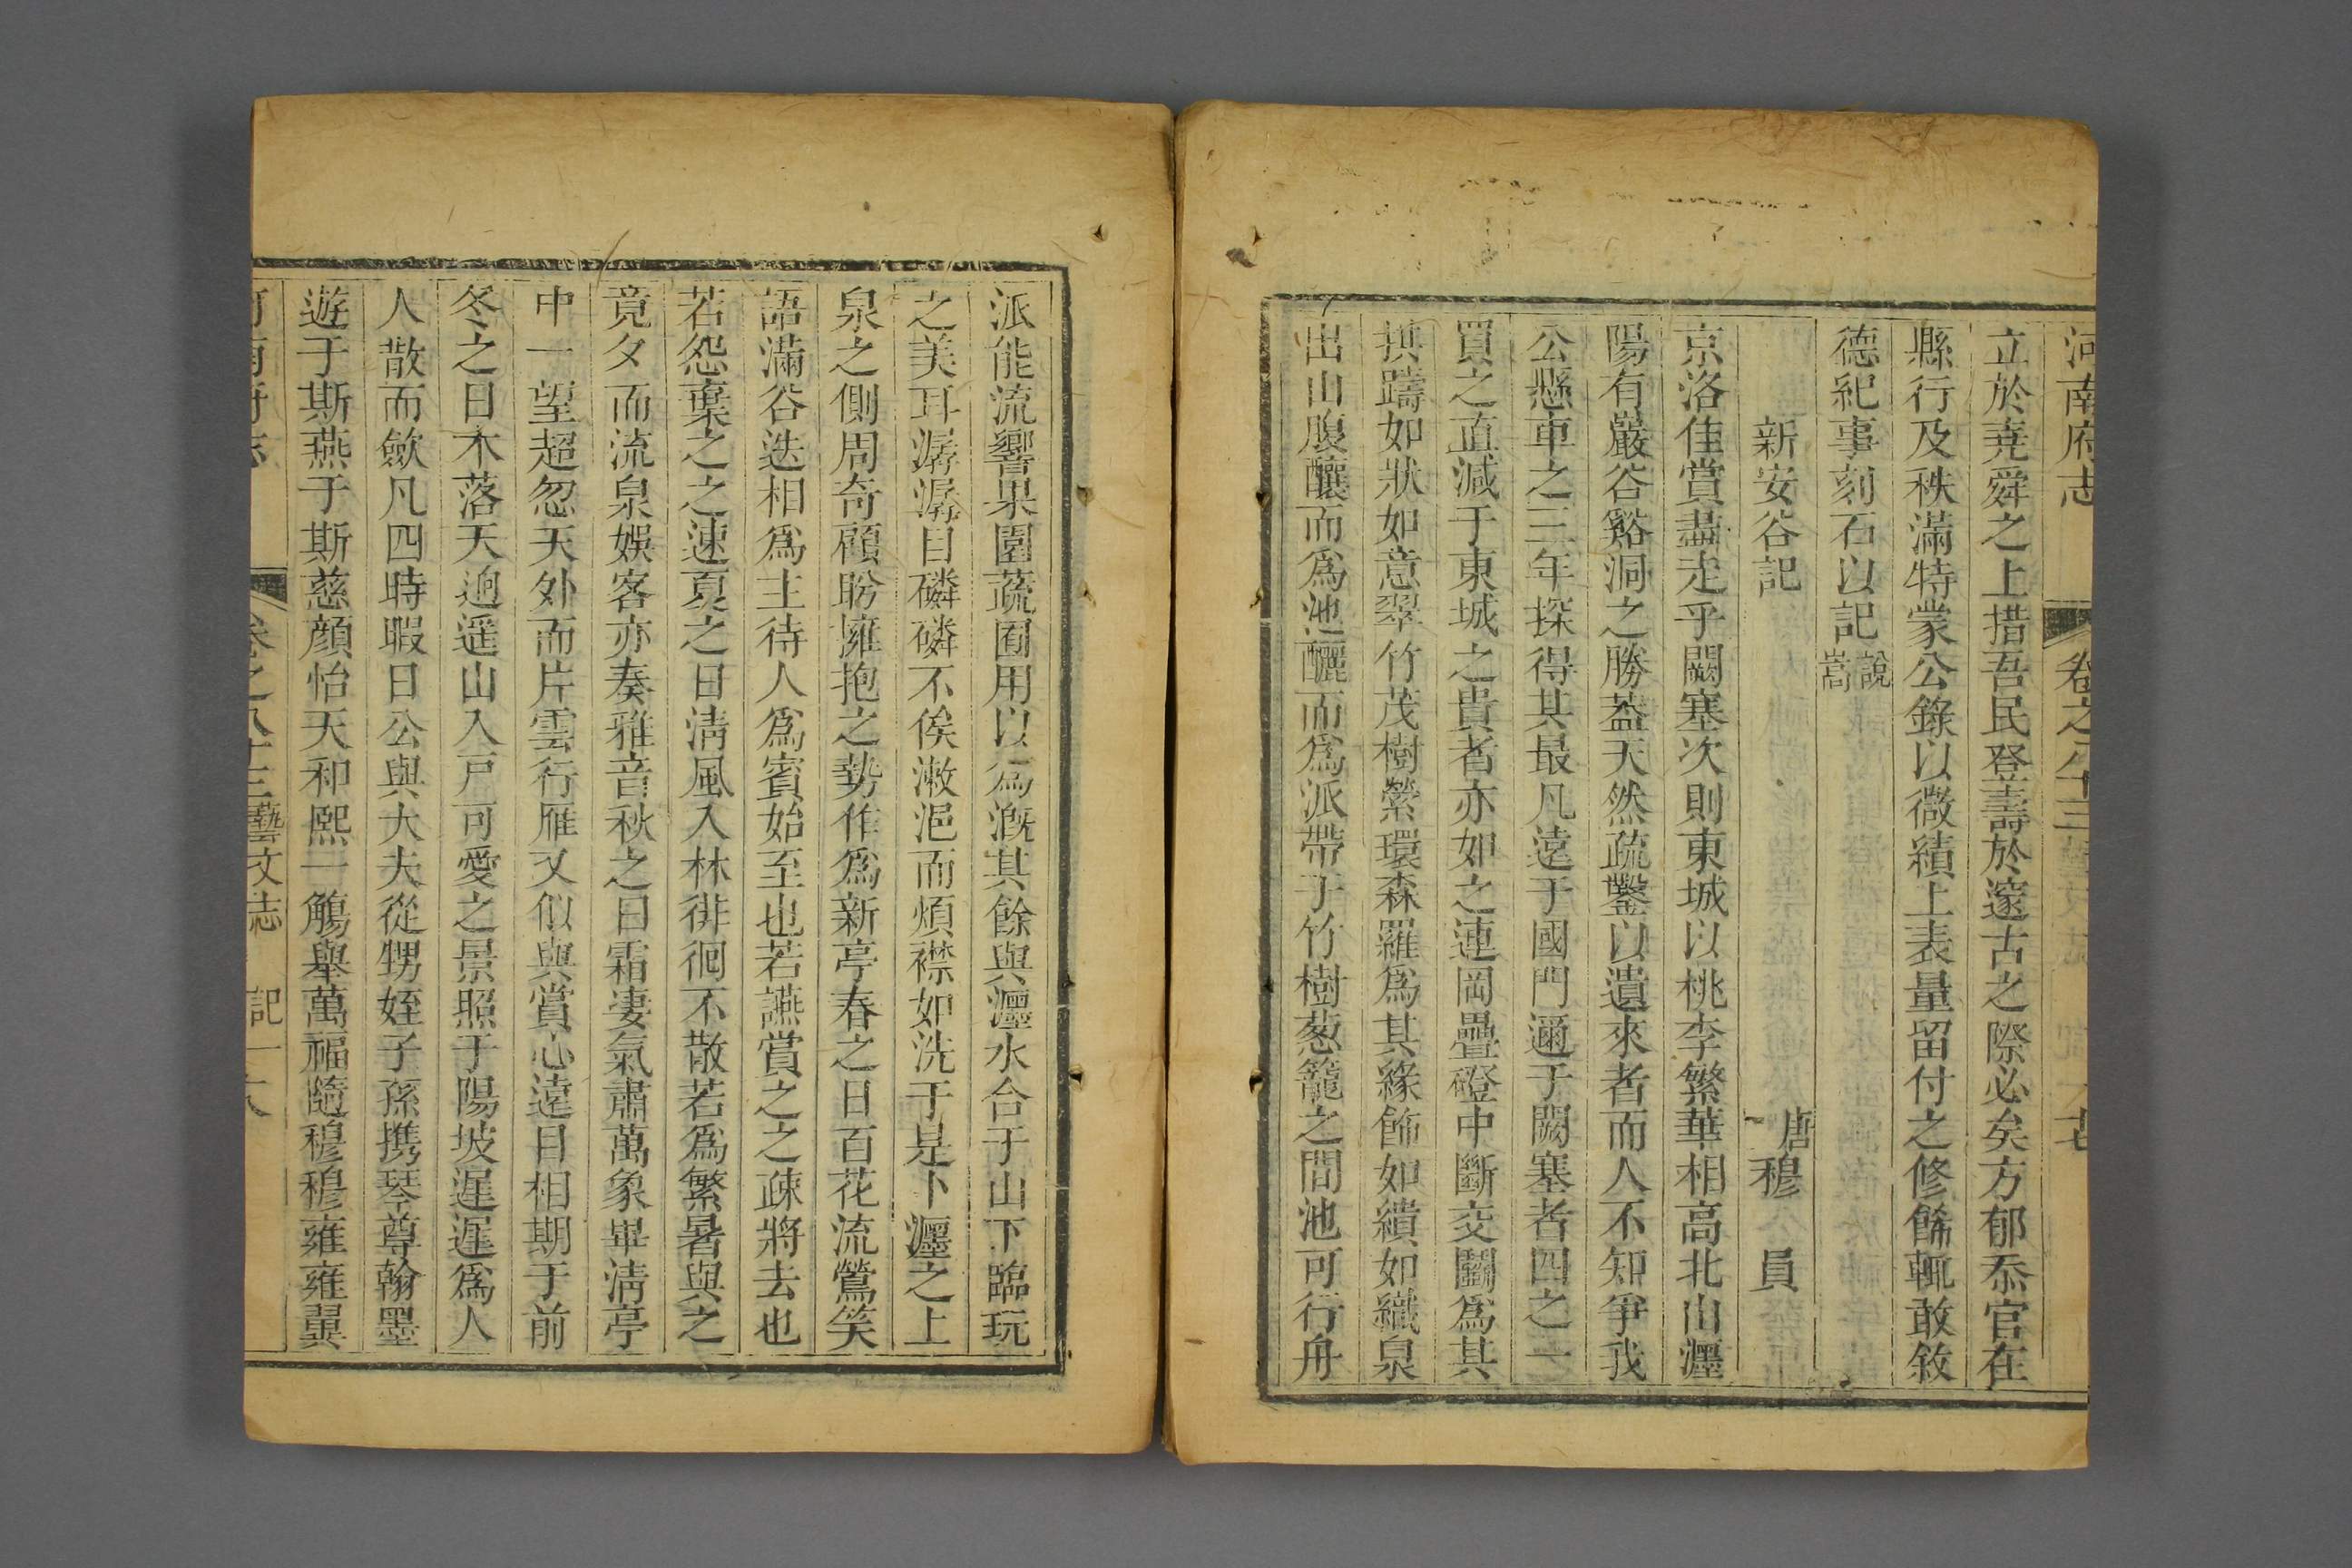 河南府志 卷之八十三
立於堯舜之上措吾民登壽於邃古之際必矣方郁忝官在
縣行及秩滿特蒙公錄以微績上表量留付之修餙輒敢敘
德紀事刻石以記說嵩
新安谷記
唐穆 員
京洛佳賞盡走乎闕塞次則東城以桃李繁華相高北山瀍
陽有巖谷谿洞之勝葢天然疏鑿以遺來者而人不知爭我
公懸車之三年探得其最凡遠于國門邇于闕塞者四之一
買之直減于東城之貴者亦如之連岡疊磴中斷交鬭爲其
拱躊如狀如意翠竹茂樹縈環森羅爲其緣飾如繢如織泉
出山腹釀而爲池釃而爲派帶于竹樹葱籠之間池可行舟
派能流響果園蔬囿用以爲溉其餘與瀍水合于山下臨玩
之美耳潺潺目磷磷不俟漱浥而煩襟如洗于是卜瀍之上
泉之側周奇顧盼擁抱之勢作爲新亭春之日百花流鶯笑
語滿谷迭相爲主待人爲賓始至也若讌賞之之疎將去也
若怨棄之之速夏之日淸風入林徘徊不散若爲繁暑與之
竟夕而流泉娛客亦奏雅音秋之日霜凄氣肅萬象畢淸亭
中一望超忽天外而片雲行雁又似與賞心遠目相期于前
冬之日木落天逈遥山入戸可愛之景照于陽坡遲遲爲人
人散而歛凡四時暇日公與大夫從甥姪子孫携琴尊翰墨
遊于斯燕于斯慈顔怡天和熙一觴舉萬福隨穆穆雍雍翼
河南府志 卷之八十三藝文志 記一 六